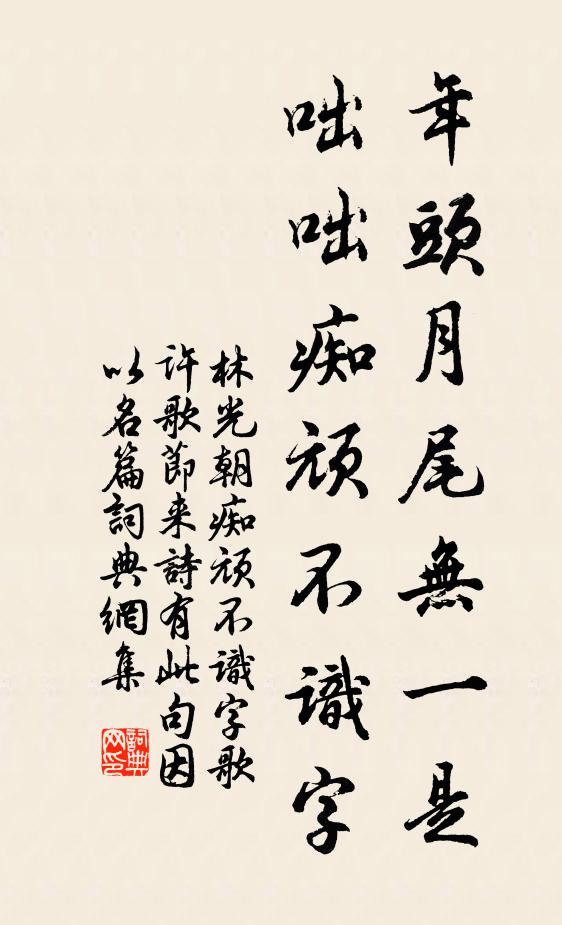 年頭月尾無一是
咄咄痴頑不識字
林光朝痴頑不識字歌
許歌節来詩有此句因
以名篇詞典網集
詞典
网印